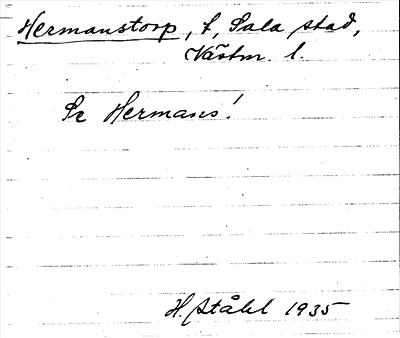 Hermanstorp, t, Sala stad,
Västm. l.
Se Hermans!
H. Ståhl 1935